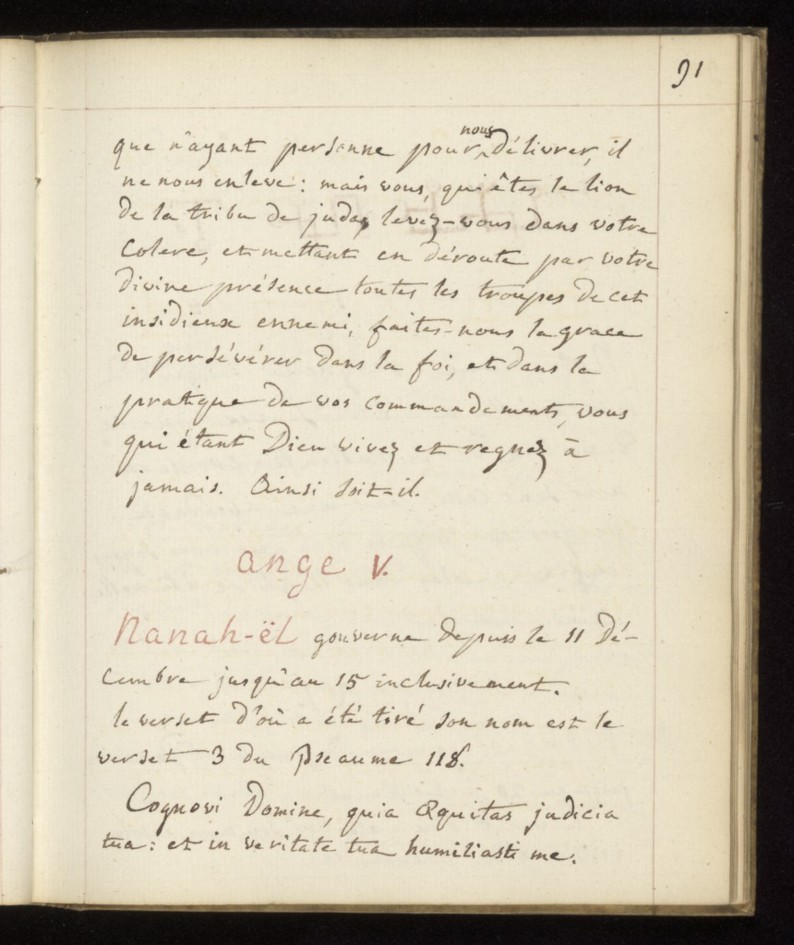 91
que n'ayant personne pour nous délivrer, il
ne nous enleve : mais vous, qui êtes le lion
de la tribu de juda, levez-vous dans votre
Colere, et mettant en déroute par votre
divine présence toutes les troupes de cet
insidieux ennemi, faites-nous la grace
de persévérer dans la foi, et dans la
pratique de vos commandements, vous
qui étant Dieu vivez et regnez à
jamais. Ainsi soit-il.
ange V.
Nanah-ël gouverne depuis le 11 Dé-
cembre jusqu'au 15 inclusivement.
le verset d'où a été tiré son nom est le
verset 3 du Pseaume 118.
Cognovi Domine, quia Æquitas judicia
tua : et in veritate tua humiliasti me.